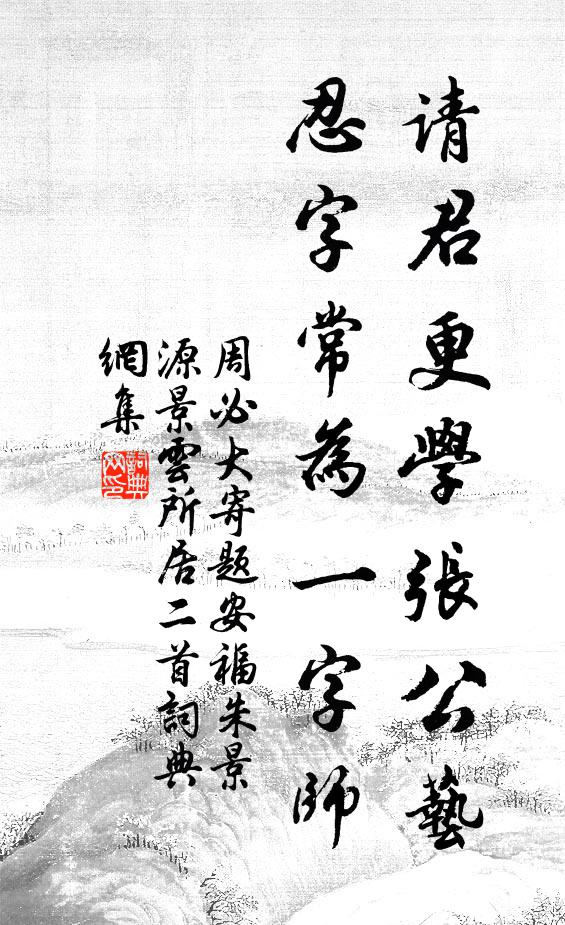 请君更學張公藝
忍字常為一字師
周必大寄題安福朱景
源景雲所居二首詞典
網集
詞典網印